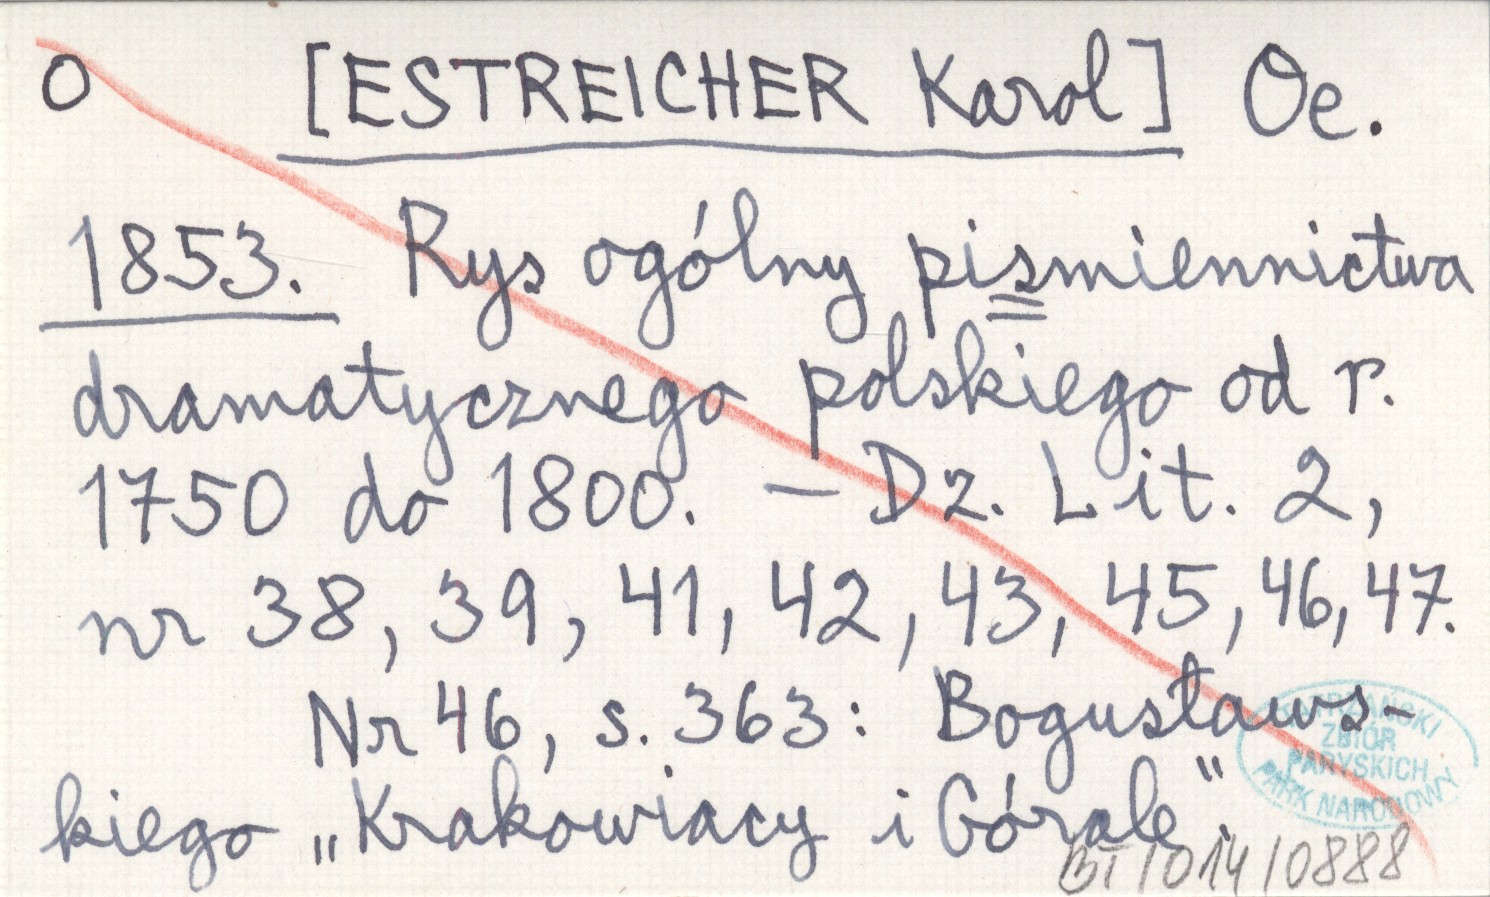 O [ESTREICHER Karol] Oe.
1853. Rys ogólny pismiennictwa
dramatycznego polskiego od r.
1750 do 1800. — Dz. Lit. 2,
nr 38, 39, 41, 42, 43, 45, 46, 47.
Nr 46, s. 363: Bogusławs-
kiego „Krakowiacy i Górale".
TATRZAŃSKI
ZBIÓR
PARYSKICH
PARK NARODOWY
BT/014/0888